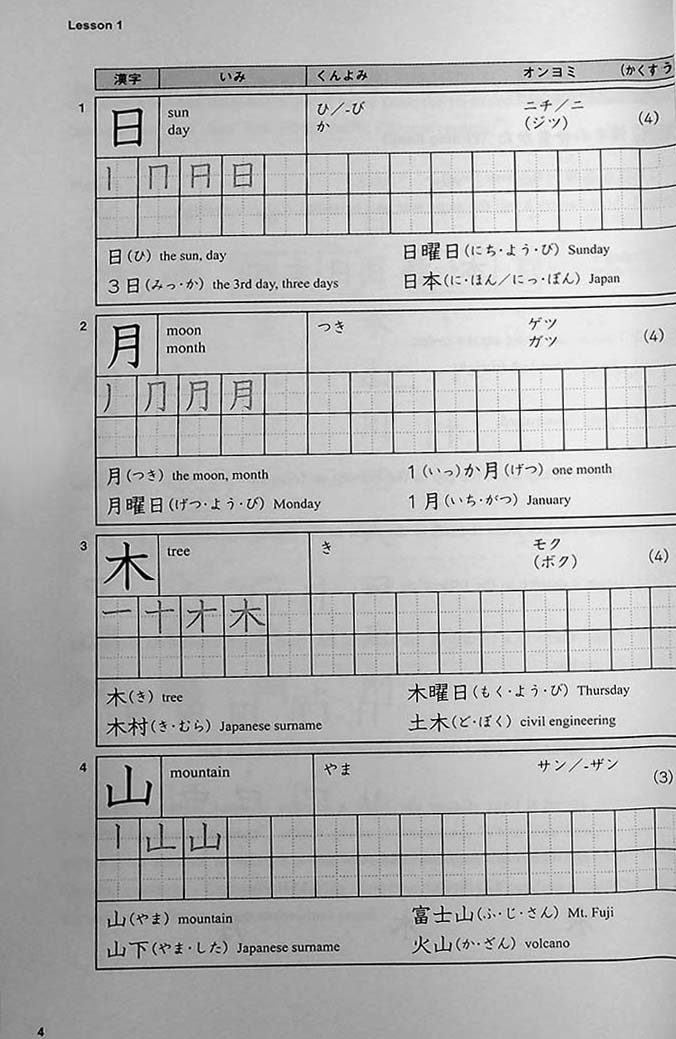 Lesson 1
漢字 いみ くんよみ オンヨミ (かくすう
1 日 sun ひ／-び ニチ／ニ (4)
day か (ジツ)
丨 冂 日 日
日(ひ) the sun, day 日曜日(にち・よう・び) Sunday
3日(みっ・か) the 3rd day, three days 日本(に・ほん／にっ・ぽん) Japan
2 月 moon つき ゲツ (4)
month ガツ
丿 冂 月 月
月(つき) the moon, month 1(いっ)か月(げつ) one month
月曜日(げつ・よう・び) Monday 1月(いち・がつ) January
3 木 tree き モク (4)
(ボク)
一 十 才 木
木(き) tree 木曜日(もく・よう・び) Thursday
木村(き・むら) Japanese surname 土木(ど・ぼく) civil engineering
4 山 mountain やま サン／-ザン (3)
丨 山 山
山(やま) mountain 富士山(ふ・じ・さん) Mt. Fuji
山下(やま・した) Japanese surname 火山(か・ざん) volcano
4